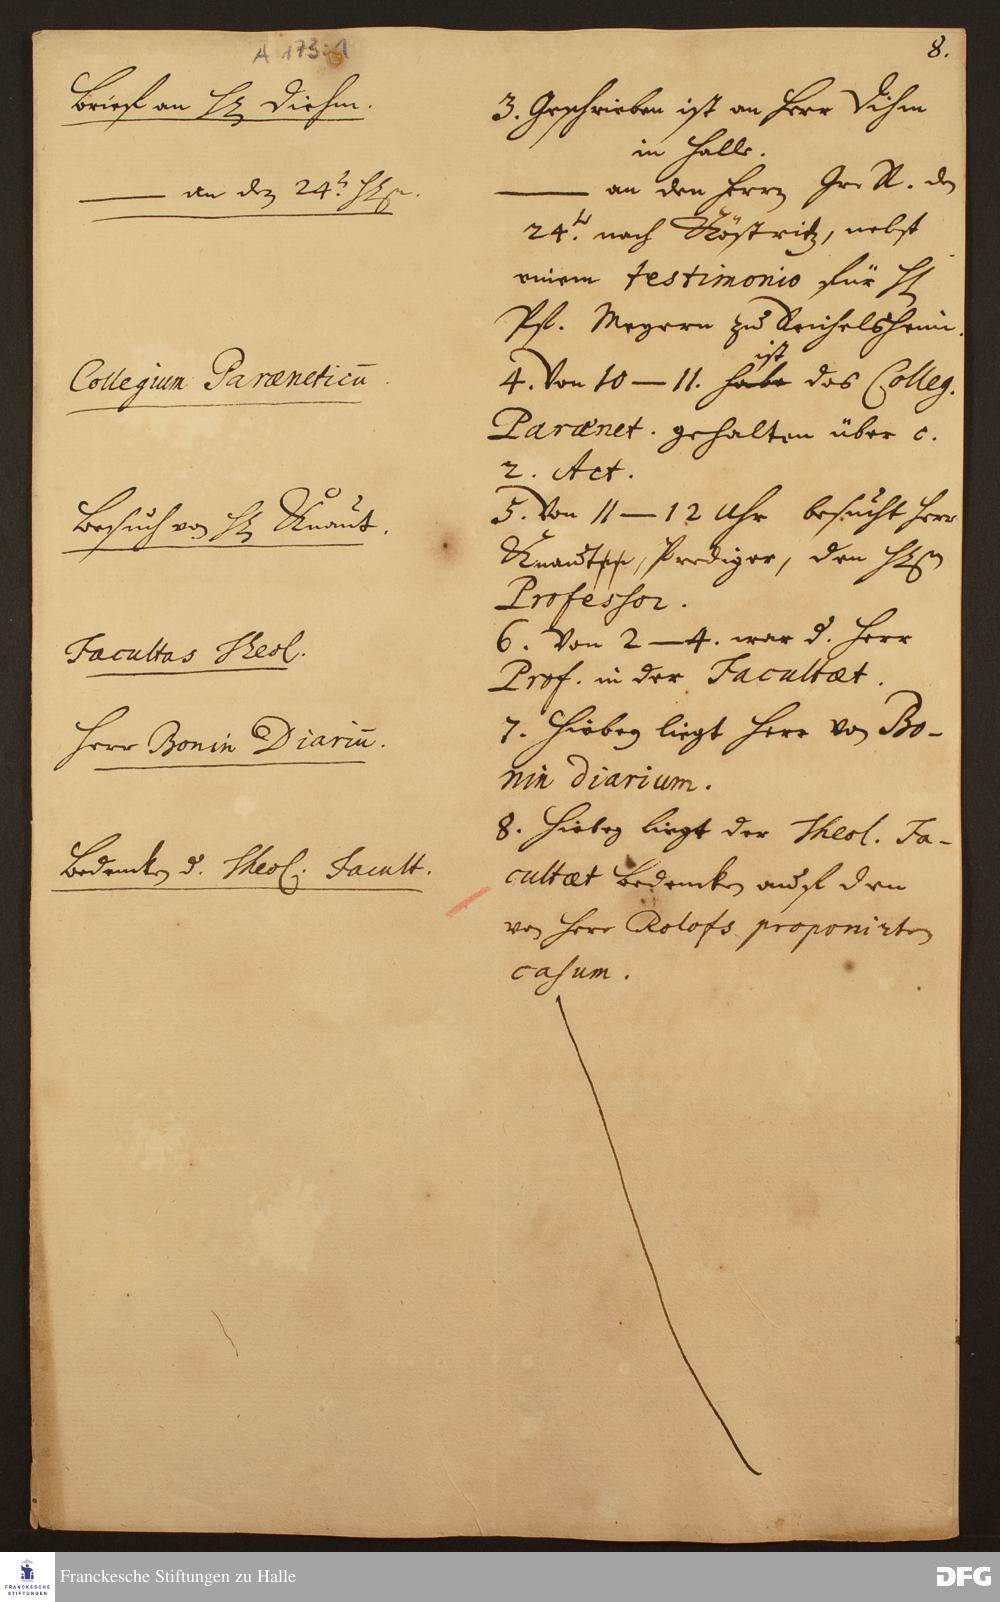 A 173:1
8.
Brief an H. Diehm.
3. Geschrieben ist an Herr Dihm
in Halle.
—— an den 24t.
—— an den Herrn Gr. R. den
24t. nach Köstritz, nebst
einem testimonio für H.
Past. Meyern zu Reichelsheim.
Collegium Paræneticū
4. Von 10—11. habe ist das Colleg.
Parænet. gehalten über c.
2. Act.
Besuch von H. Knaut.
5. Von 11—12 Uhr besucht Herr
Prediger, den
Professor.
Facultas Theol.
6. Von 2—4. war d. Herr
Prof. in der Facultæt.
Herr Bonin Diariū.
7. Hiebey liegt Herr von Bo-
nin Diarium.
8. Hiebey liegt der Theol. Fa-
Bedencken d. Theol. Facult.
cultæt Bedencken auf den
von Herr Rolofs proponirten
casum.
FRANCKESCHE
STIFTUNGEN
Franckesche Stiftungen zu Halle
DFG